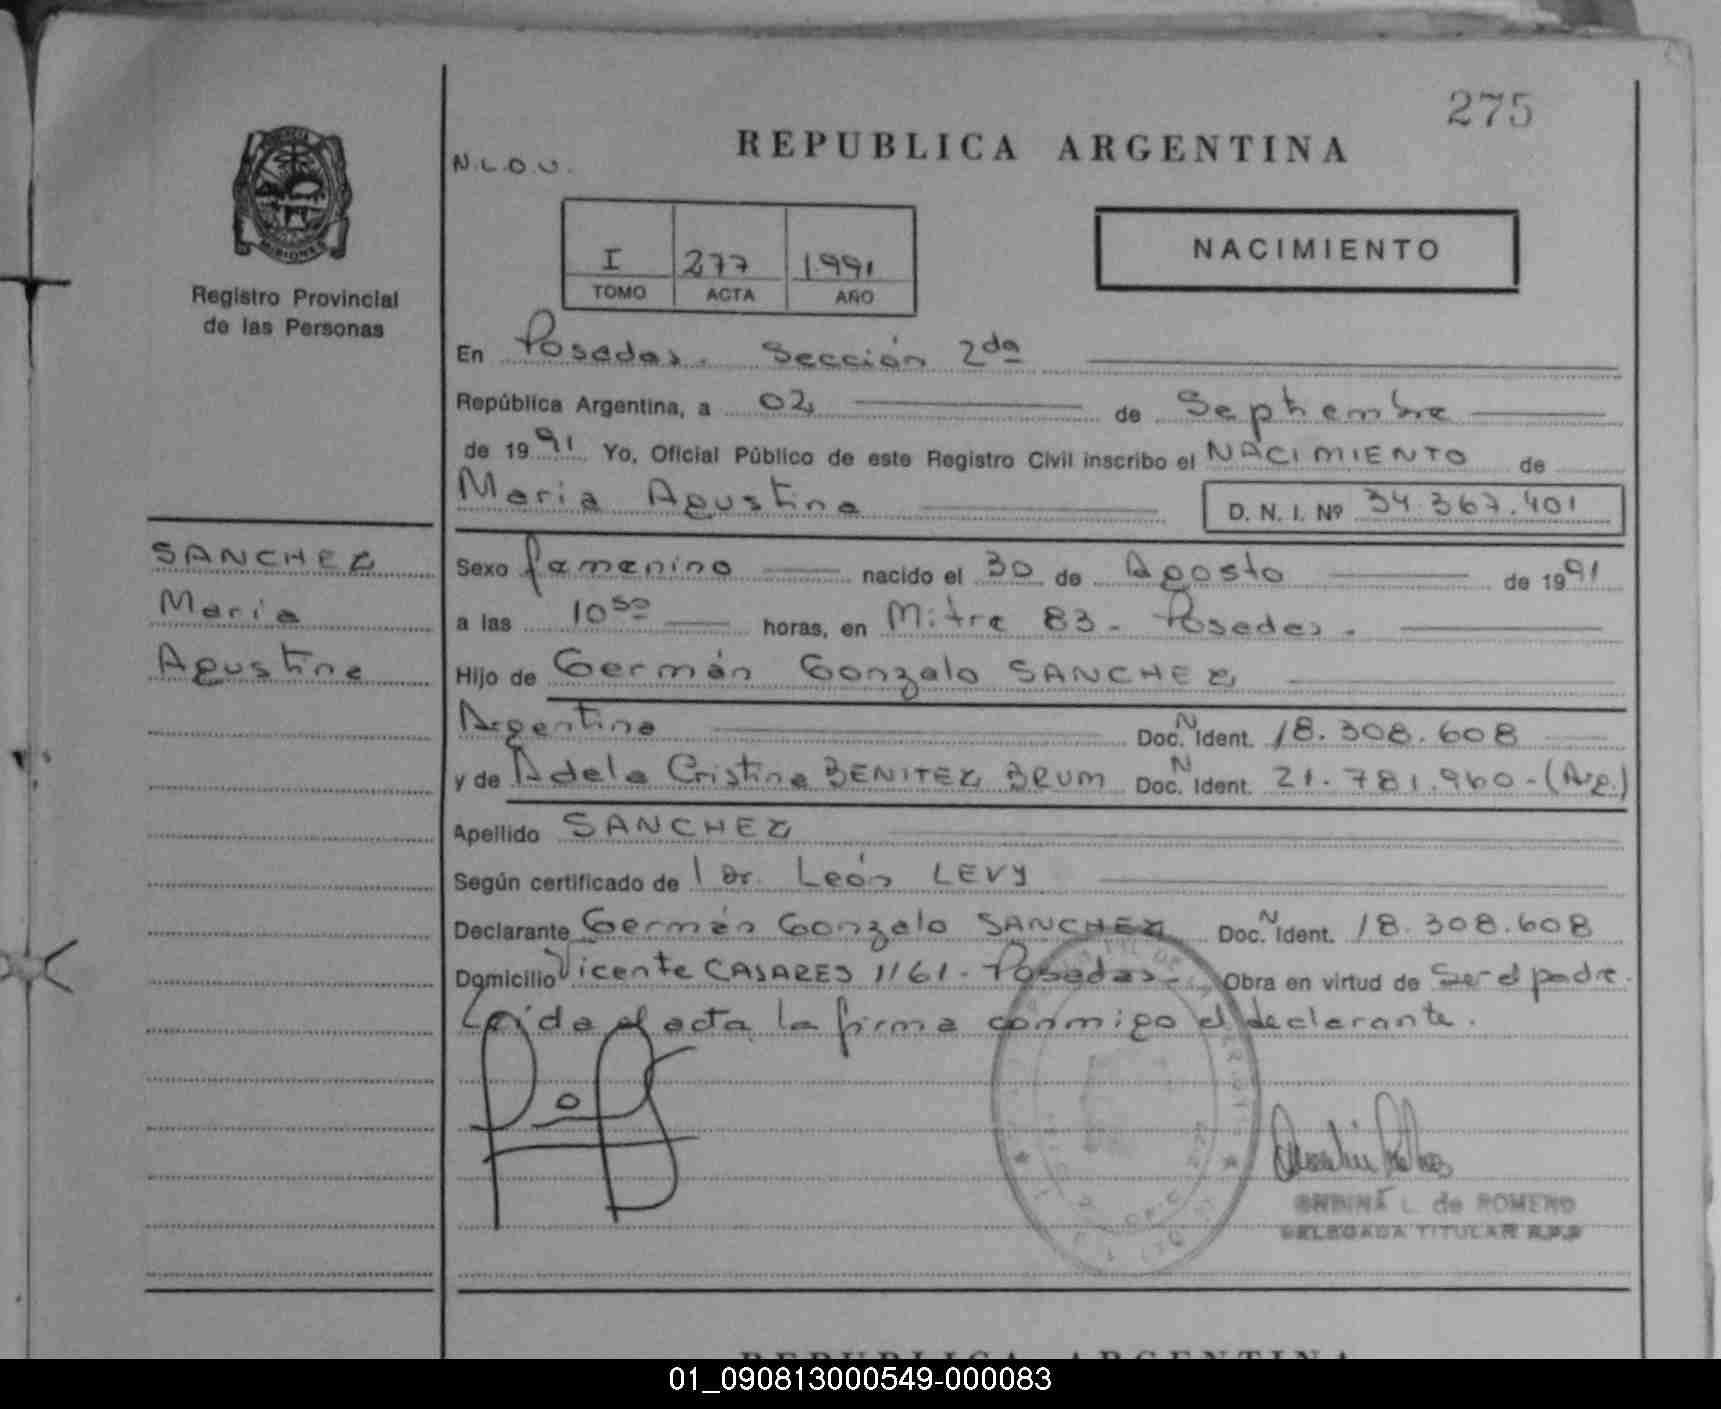 275
REPUBLICA ARGENTINA
N.L.O.U.
MISIONES
Registro Provincial
de las Personas
I 277 1991
TOMO ACTA AÑO
NACIMIENTO
En Posadas. Sección 2da
República Argentina, a 02 de Septiembre
de 1991 Yo, Oficial Público de este Registro Civil inscribo el NACIMIENTO de
Maria Agustina
D. N. I. Nº 34.367.401
SANCHEZ
Maria
Agustina
Sexo femenino nacido el 30 de Agosto de 1991
a las 10 50 horas, en Mitre 83 - Posadas.
Hijo de Germán Gonzalo SANCHEZ
Argentino Doc. N Ident. 18.308.608
y de Adela Cristina BENITEZ BRUM Doc. N Ident. 21.781.960 - (Arg.)
Apellido SANCHEZ
Según certificado de l Dr. León LEVY
Declarante Germán Gonzalo SANCHEZ Doc. N Ident. 18.308.608
Domicilio Vicente CASARES 1161 - Posadas. Obra en virtud de Ser el padre.
Leida el acta la firma conmigo el declarante.
L. de ROMERO
DELEGADA TITULAR R.P.P
REPUBLICA ARGENTINA
01_090813000549-000083